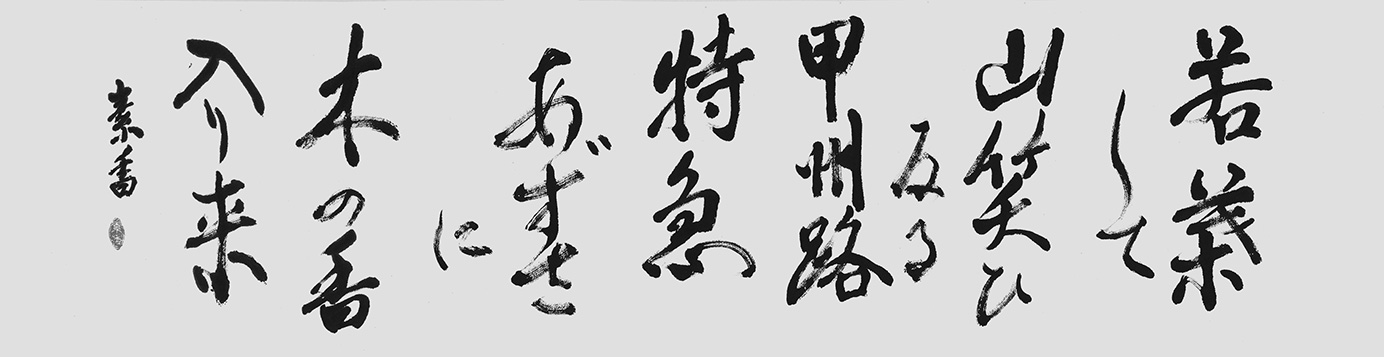 若葉
して
山笑ひ
反る
甲州路
特急
あずさ
に
木の香
入り来
素香